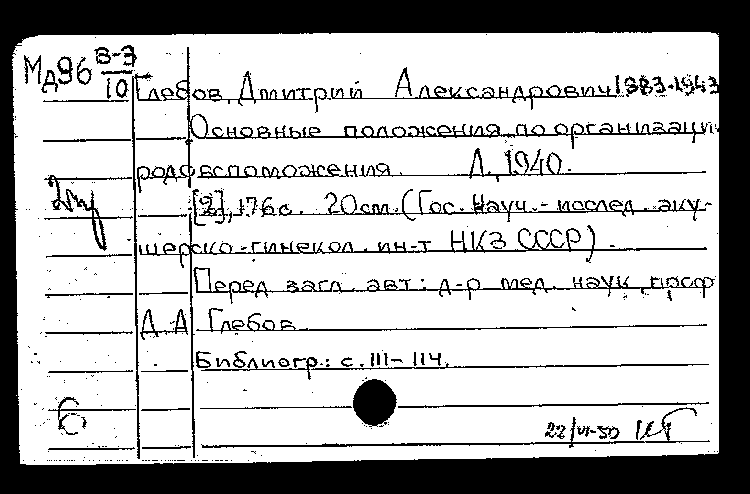 Мд96 В-3/10
Глебов, Дмитрий Александрович 1883-1943
Основные положения по организаци
родовспоможения. Л, 1940.
[2], 176с. 20см. (Гос. науч.-исслед. аку-
шерско-гинекол. ин-т НКЗ СССР).
Перед загл. авт: д-р мед. наук проф
Д. А Глебов
Библиогр.: с. 111-114.
6
22/VI-50